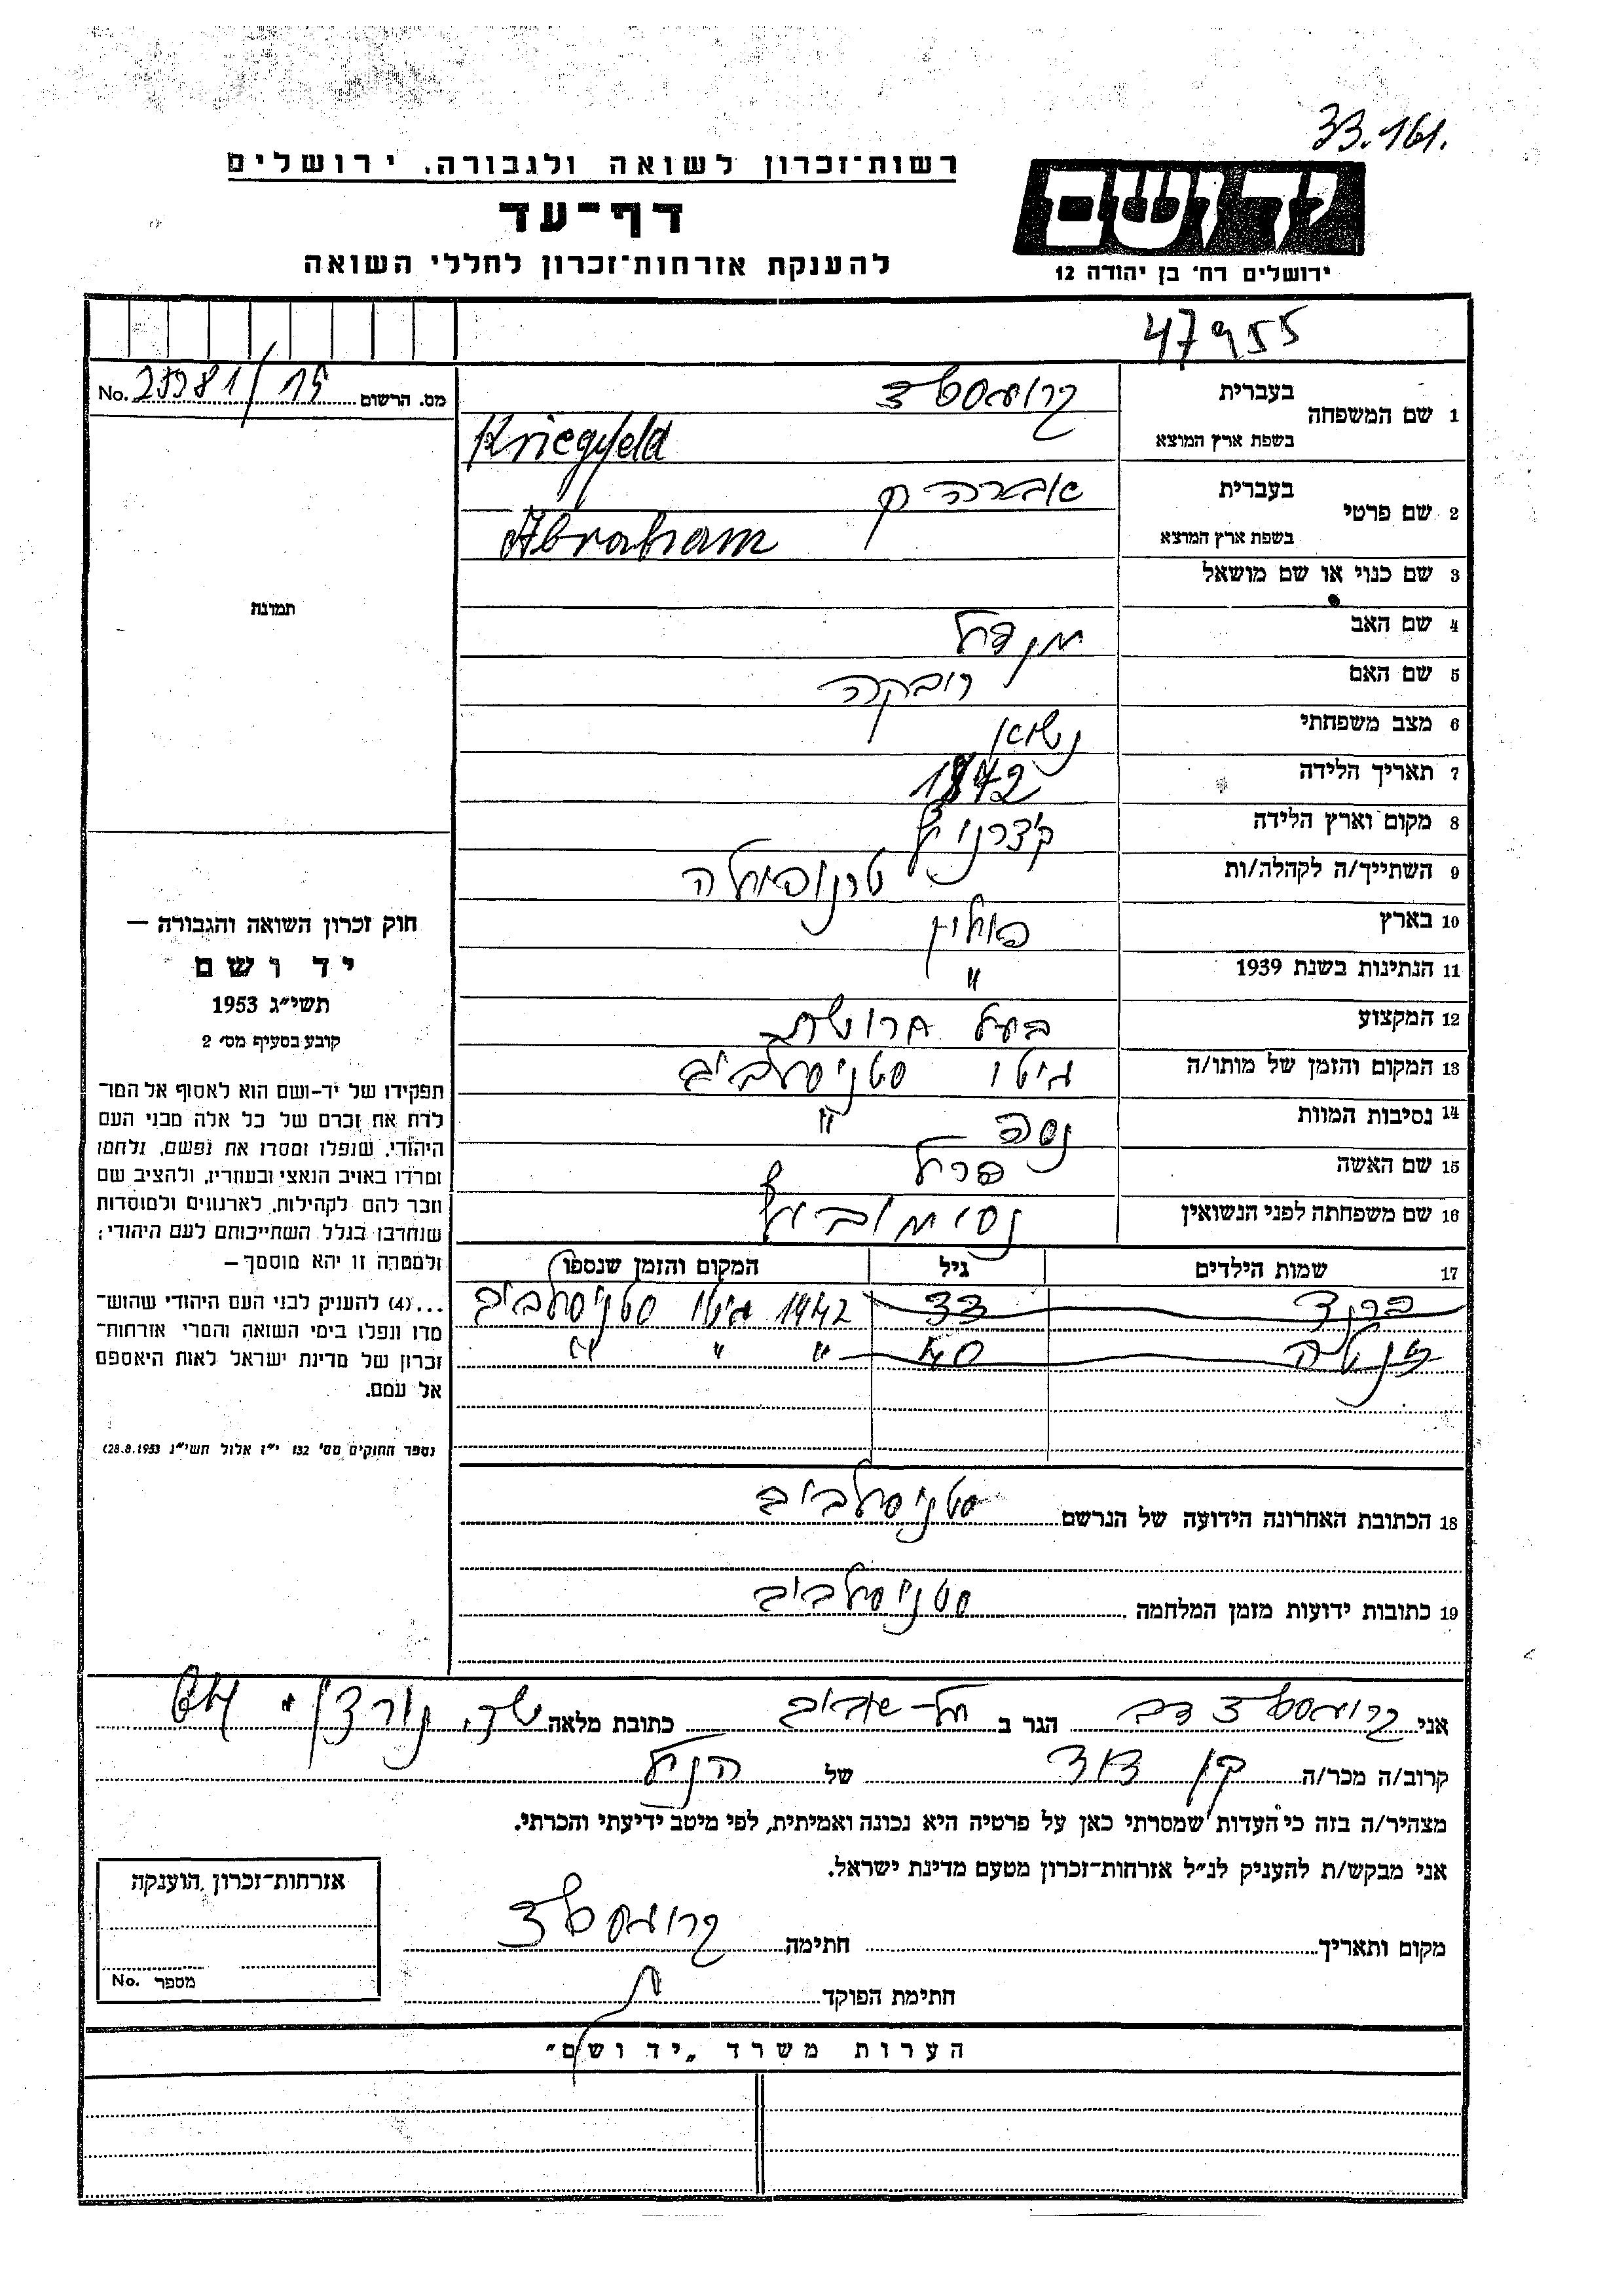 33.161.
רשות־זכרון לשואה ולגבורה, ירושלים
דף־עד
להענקת אזרחות־זכרון לחללי השואה
ידושם
ירושלים רח׳ בן יהודה 12
47955
מס. הרשום 25381/15 No.
1 שם המשפחה
בעברית
בשפת ארץ המוצא
Kriegsfeld
2 שם פרטי
בעברית אברהם
בשפת ארץ המוצא Abraham
3 שם כנוי או שם מושאל
4 שם האב מנדל
5 שם האם רובקה
6 מצב משפחתי נשוא
7 תאריך הלידה
8 מקום וארץ הלידה
9 השתייך/ה לקהלה/ות טרנופולה
10 בארץ פולין
11 הנתינות בשנת 1939 "
12 המקצוע בעל חרושת
13 המקום והזמן של מותו/ה גיטו סטניסלביב
14 נסיבות המוות נספה "
15 שם האשה פרל
16 שם משפחתה לפני הנשואין
17 שמות הילדים גיל המקום והזמן שנספו
33 1942 גיטו סטניסלביב
40 " " "
18 הכתובת האחרונה הידועה של הנרשם סטניסלביב
19 כתובות ידועות מזמן המלחמה סטניסלביב
תמונה
חוק זכרון השואה והגבורה —
יד ושם
תשי״ג 1953
קובע בסעיף מס׳ 2
תפקידו של יד־ושם הוא לאסוף אל המו־
לדת את זכרם של כל אלה מבני העם
היהודי, שנפלו ומסרו את נפשם, נלחמו
ומרדו באויב הנאצי ובעוזריו, ולהציב שם
וזכר להם לקהילות, לארגונים ולמוסדות
שנחרבו בגלל השתייכותם לעם היהודי;
ולמטרה זו יהא מוסמך —
...(4) להעניק לבני העם היהודי שהוש־
מדו ונפלו בימי השואה והמרי אזרחות־
זכרון של מדינת ישראל לאות היאספם
אל עמם.
(ספר החוקים מס׳ 132 י״ז אלול תשי״ג 28.8.1953)
אני דב הגר ב תל־אביב כתובת מלאה שד. נורדוי
קרוב/ה מכר/ה בן דוד של הנ״ל
מצהיר/ה בזה כי העדות שמסרתי כאן על פרטיה היא נכונה ואמיתית, לפי מיטב ידיעתי והכרתי.
אני מבקש/ת להעניק לנ״ל אזרחות־זכרון מטעם מדינת ישראל.
מקום ותאריך חתימה
חתימת הפוקד
אזרחות־זכרון הוענקה
מספר No.
הערות משרד „יד ושם״